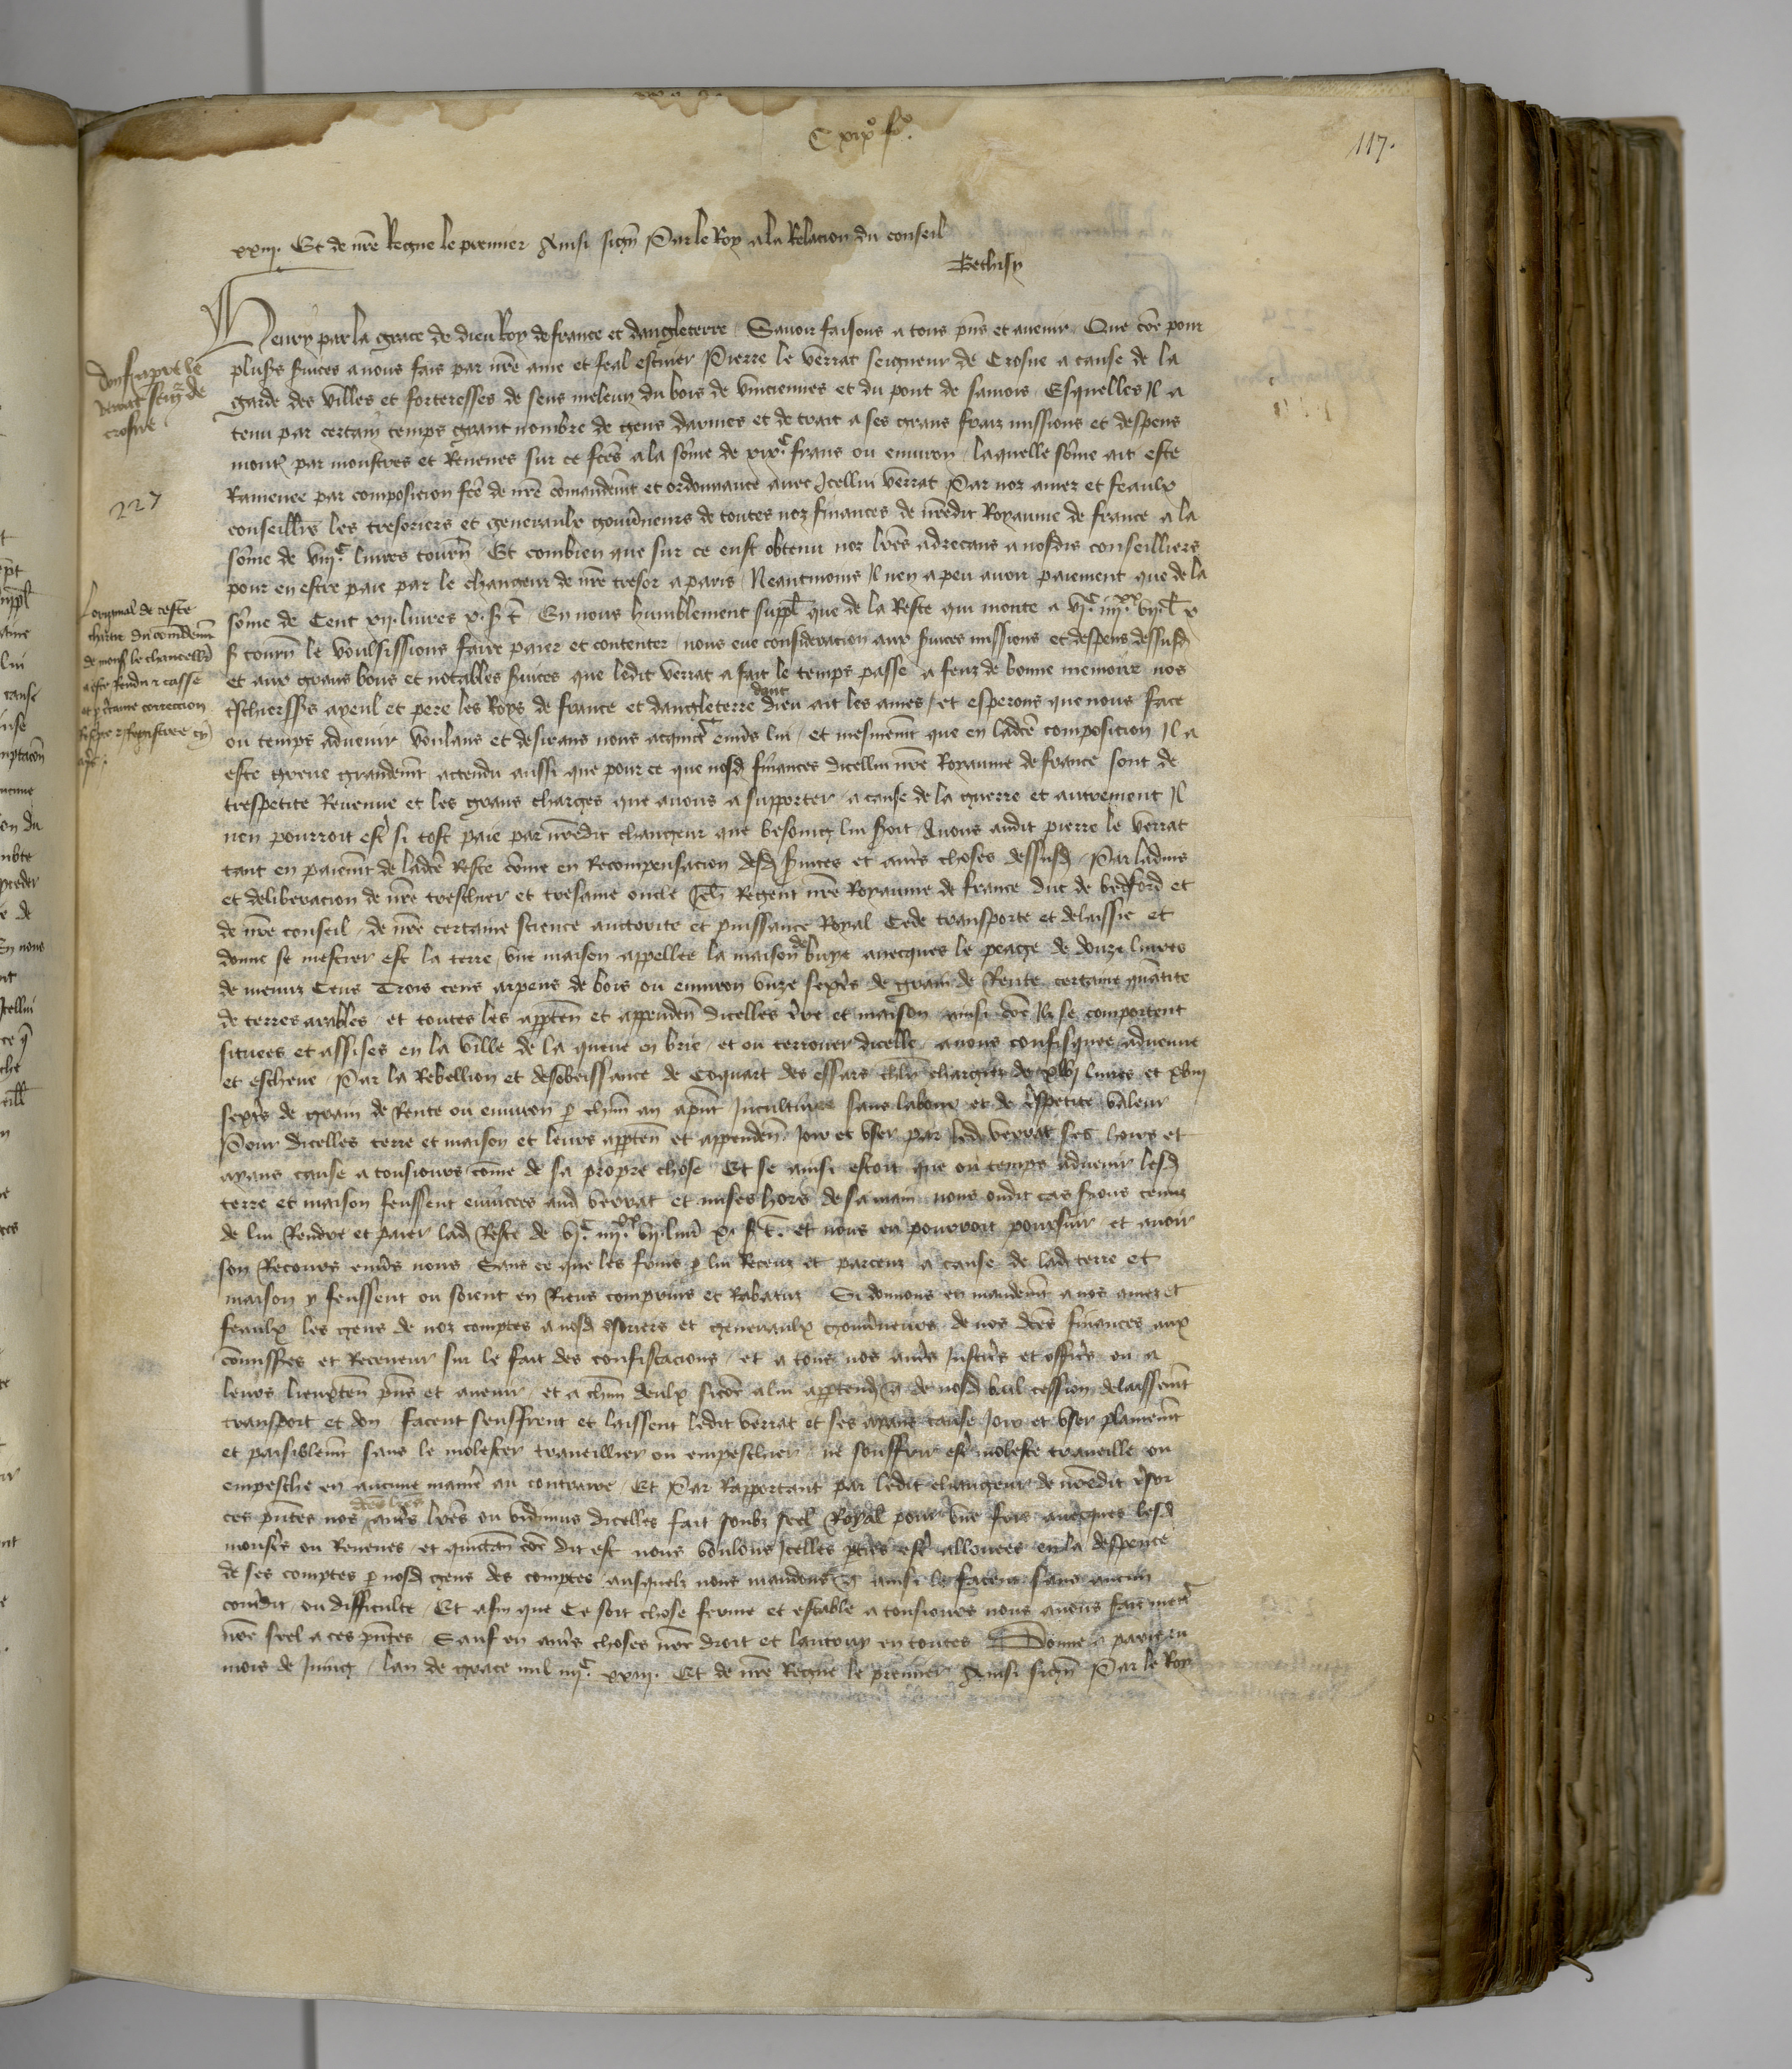 C xix° fo.
117.
xxiij. Et de nre Regne le premier Ainsi signe Par le Roy a la Relacion du conseil
Bethisy
Henry par la grace de dieu Roy de france et dangleterre Sauoir faisons a tous pns et auenir Que coe pour
plusrs suices a nous fais par nre ame et feal escuier Pierre le verrat seigneur de Crosne a cause de la
garde des villes et forteresses de sens meleun du bois de vinciennes et du pont de samois Esquelles Il a
tenu par certain temps grant nombre de gens darmes et de trait a ses grans fraiz missions et despens
mont par monstres et Reueues sur ce fces a la some de xixc frans ou enuiron laquelle some ait este
Ramenee par composicion fce de nre comandemt et ordonnance auec Icellui verrat Par noz amez et feaulx
conseillrs les tresoriers et generaulx gouuneurs de toutes noz finances de nredit Royaume de france a la
some de viijc liures tourn Et combien que sur ce eust obtenu noz lres adrecans a nosdis conseilliers
pour en estre paie par le changeur de nre tresor a paris Neantmoins Il nen a peu auoir paiement que de la
some de Cent xij liures x. s t En nous humblement suppl que de la Reste qui monte a vjc iiijxx vij l x
s tourn le voulsissions faire paier et contenter nous eue consideracion aux suices missions et despens dessusd
et aux grans bons et notables suices que ledit verrat a fait le temps passe a feuz de bonne memoire nos
treschiers srs ayeul et pere les Roys de france et dangleterre dont dieu ait les ames et esperons que nous face
ou temps aduenir voulans et desirans nous acquict enuers lui et mesmemt que en ladce composicion Il a
este greue grandemt actendu aussi que pour ce que nosd finances dicellui nre Royaume de france sont de
trespetite Reuenue et les grans charges que auons a supporter a cause de la guerre et autrement Il
nen pourroit est si tost paie par nredit changeur que besoing lui soit Auons audit pierre le verrat
tant en paiemt de ladce Reste come en Recompensacion desd suices et autrs choses dessusd Par laduis
et deliberacion de nre treschier et tresame oncle Jeh Regent nre Royaume de france duc de bedford et
de nre conseil de nre certaine science auctorite et puissance Royal Cede transporte et delaissie et
donne se mestier est la terre vne maison appellee la maison de buye auecques le peage de douze liures
de menuz Cens Trois cens arpens de bois ou enuiron vnze sextrs de grain de Rente certaine quantite
de terres arables et toutes les apptenn et appenden dicelles tre et maison ainsi coe Ilz se comportent
situees et assises en la ville de la queue en brie et ou terrouer dicelle a nous confisquee aduenue
et escheue Par la Rebellion et desobeissance de Coquart des essars chlr chargees de xvj liures et xviij
sextrs de grain de Rente ou enuiron p chun an apnt Inculture sans labour et de trespetite valeur
Pour dicelles terre et maison et leurs apptenn et appenden Joir et vser par led verrat ses hoirs et
ayans cause a tousiours come de sa propre chose Et se ainsi estoit que ou temps aduenir lesd
terre et maison feussent euincees aud verrat et mises hors de sa main nous oudit cas serons tenuz
de lui Rendre et paier lad Reste de vjc iiijxx vij liur x. s t. et nous en pourroit poursuir et auoir
son Recours enuers nous Sans ce que les fruis p lui Receuz et parceuz a cause de lad terre et
maison y feussent ou soient en Riens comprins et Rabatuz Si donnons en mandemt a nos amez et
feaulx les gens de noz comptes a nosd tsoriers et generaulx gouuneurs de nos dces finances aux
comissrs et Receueur sur le fait des confiscacions et a tous nos autrs Justicrs et officrs ou a
leurs lieuxten pns et auenir et a chun deulx sicoe a lui apptendra q de nosd bail cession delaissemt
transport et don facent seuffrent et laissent ledit verrat et ses ayans cause Joir et vser plainemt
et paisiblemt sans le molester traueillier ou empeschier ne souffrir est moleste traueille ou
empesche en aucune maniere au contraire Et Par Rapportant par ledit changeur de nredit tsor
ces pntes nos autrs lres ou vidimus dicelles fait soubz seel Royal pour vne fois auecques lesd
monstrs ou Reueues et quictan coe dit est nous voulons Icelles ptes est allouees en la despence
de ses comptes p nosd gens des comptes ausquelz nous mandons q ainsi le facent sans aucun
contredit ou difficulte Et afin que Ce soit chose ferme et estable a tousiours nous auons fait mectr
nre seel a ces pntes Sauf en autrs choses nre droit et lautruy en toutes Donne a paris ou
mois de Juing lan de grace mil iiijc xxiij. Et de nre Regne le premier Ainsi sign Par le Roy
don fait a p le
verrat seigr de
crosne
227
Loriginal de ceste
chartre du comdemt
de mons le chancellr
a este Rendu z casse
et p ctaine correccion